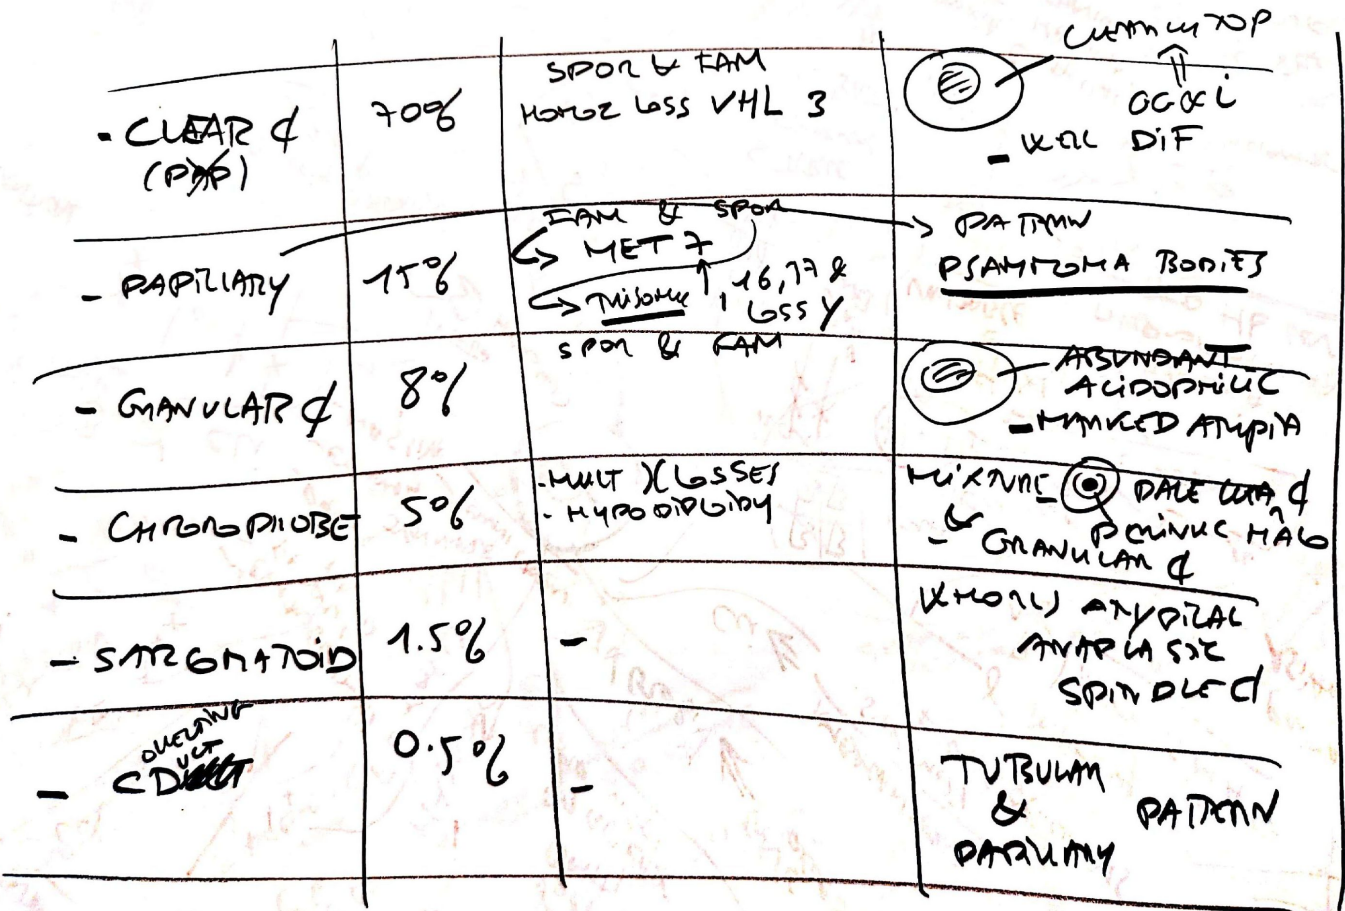 - CLEAR ₵
(PAP)
70%
SPOR & FAM
HOMOZ LOSS VHL 3
CLEAR CYTOP
- WELL DIF
- PAPILLARY
15%
FAM & SPOR
MET 7
TRISOMY 7, 16, 17 &
LOSS Y
PATTERN
PSAMMOMA BODIES
- GRANULAR ₵
8%
SPOR & FAM
ABUNDANT
ACIDOPHILIC
- MARKED ATYPIA
- CHROMOPHOBE
5%
- MULT LOSSES
- HYPODIPLOIDY
MIXTURE
PALE CLEAR ₵
PERINUC HALO
- & GRANULAR ₵
- SARCOMATOID
1.5%
-
WHORLS ATYPICAL
ANAPLASTIC
SPINDLE ₵
OLLECTING
UCT
- CD
0.5%
-
TUBULAR
&
PAPILLARY
PATTERN